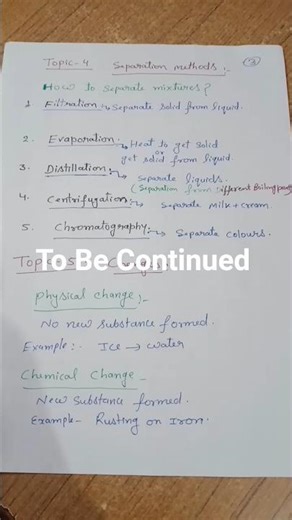 Topic-4 Separation methods:-
How to separate mixtures?
1. Filtration:→ Separate solid from liquid.
2. Evaporation:→ Heat to get solid
or
get solid from liquid.
3. Distillation:→ Separate liquids.
(Separation from different Boiling
4. Centrifugation:→ Separate Milk+cream.
5. Chromatography:→ Separate colours.
To Be Continued
Topic-5
physical change:-
No new Substance formed.
Example:- Ice → water
Chemical Change-
New substance formed.
Example- Rusting on Iron.